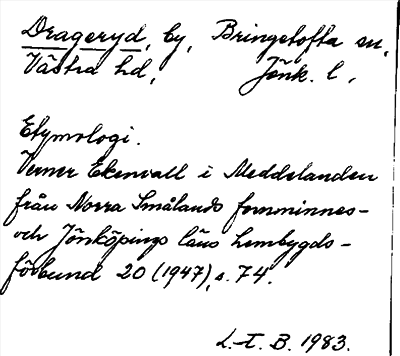 Drageryd, by, Bringetofta sn,
Västra hd, Jönk. l,
Etymologi.
Verner Ekenvall i Meddelanden
från Norra Smålands fornminnes-
och Jönköpings läns hembygds-
förbund 20 (1947), s. 74.
L.-E. B. 1983.